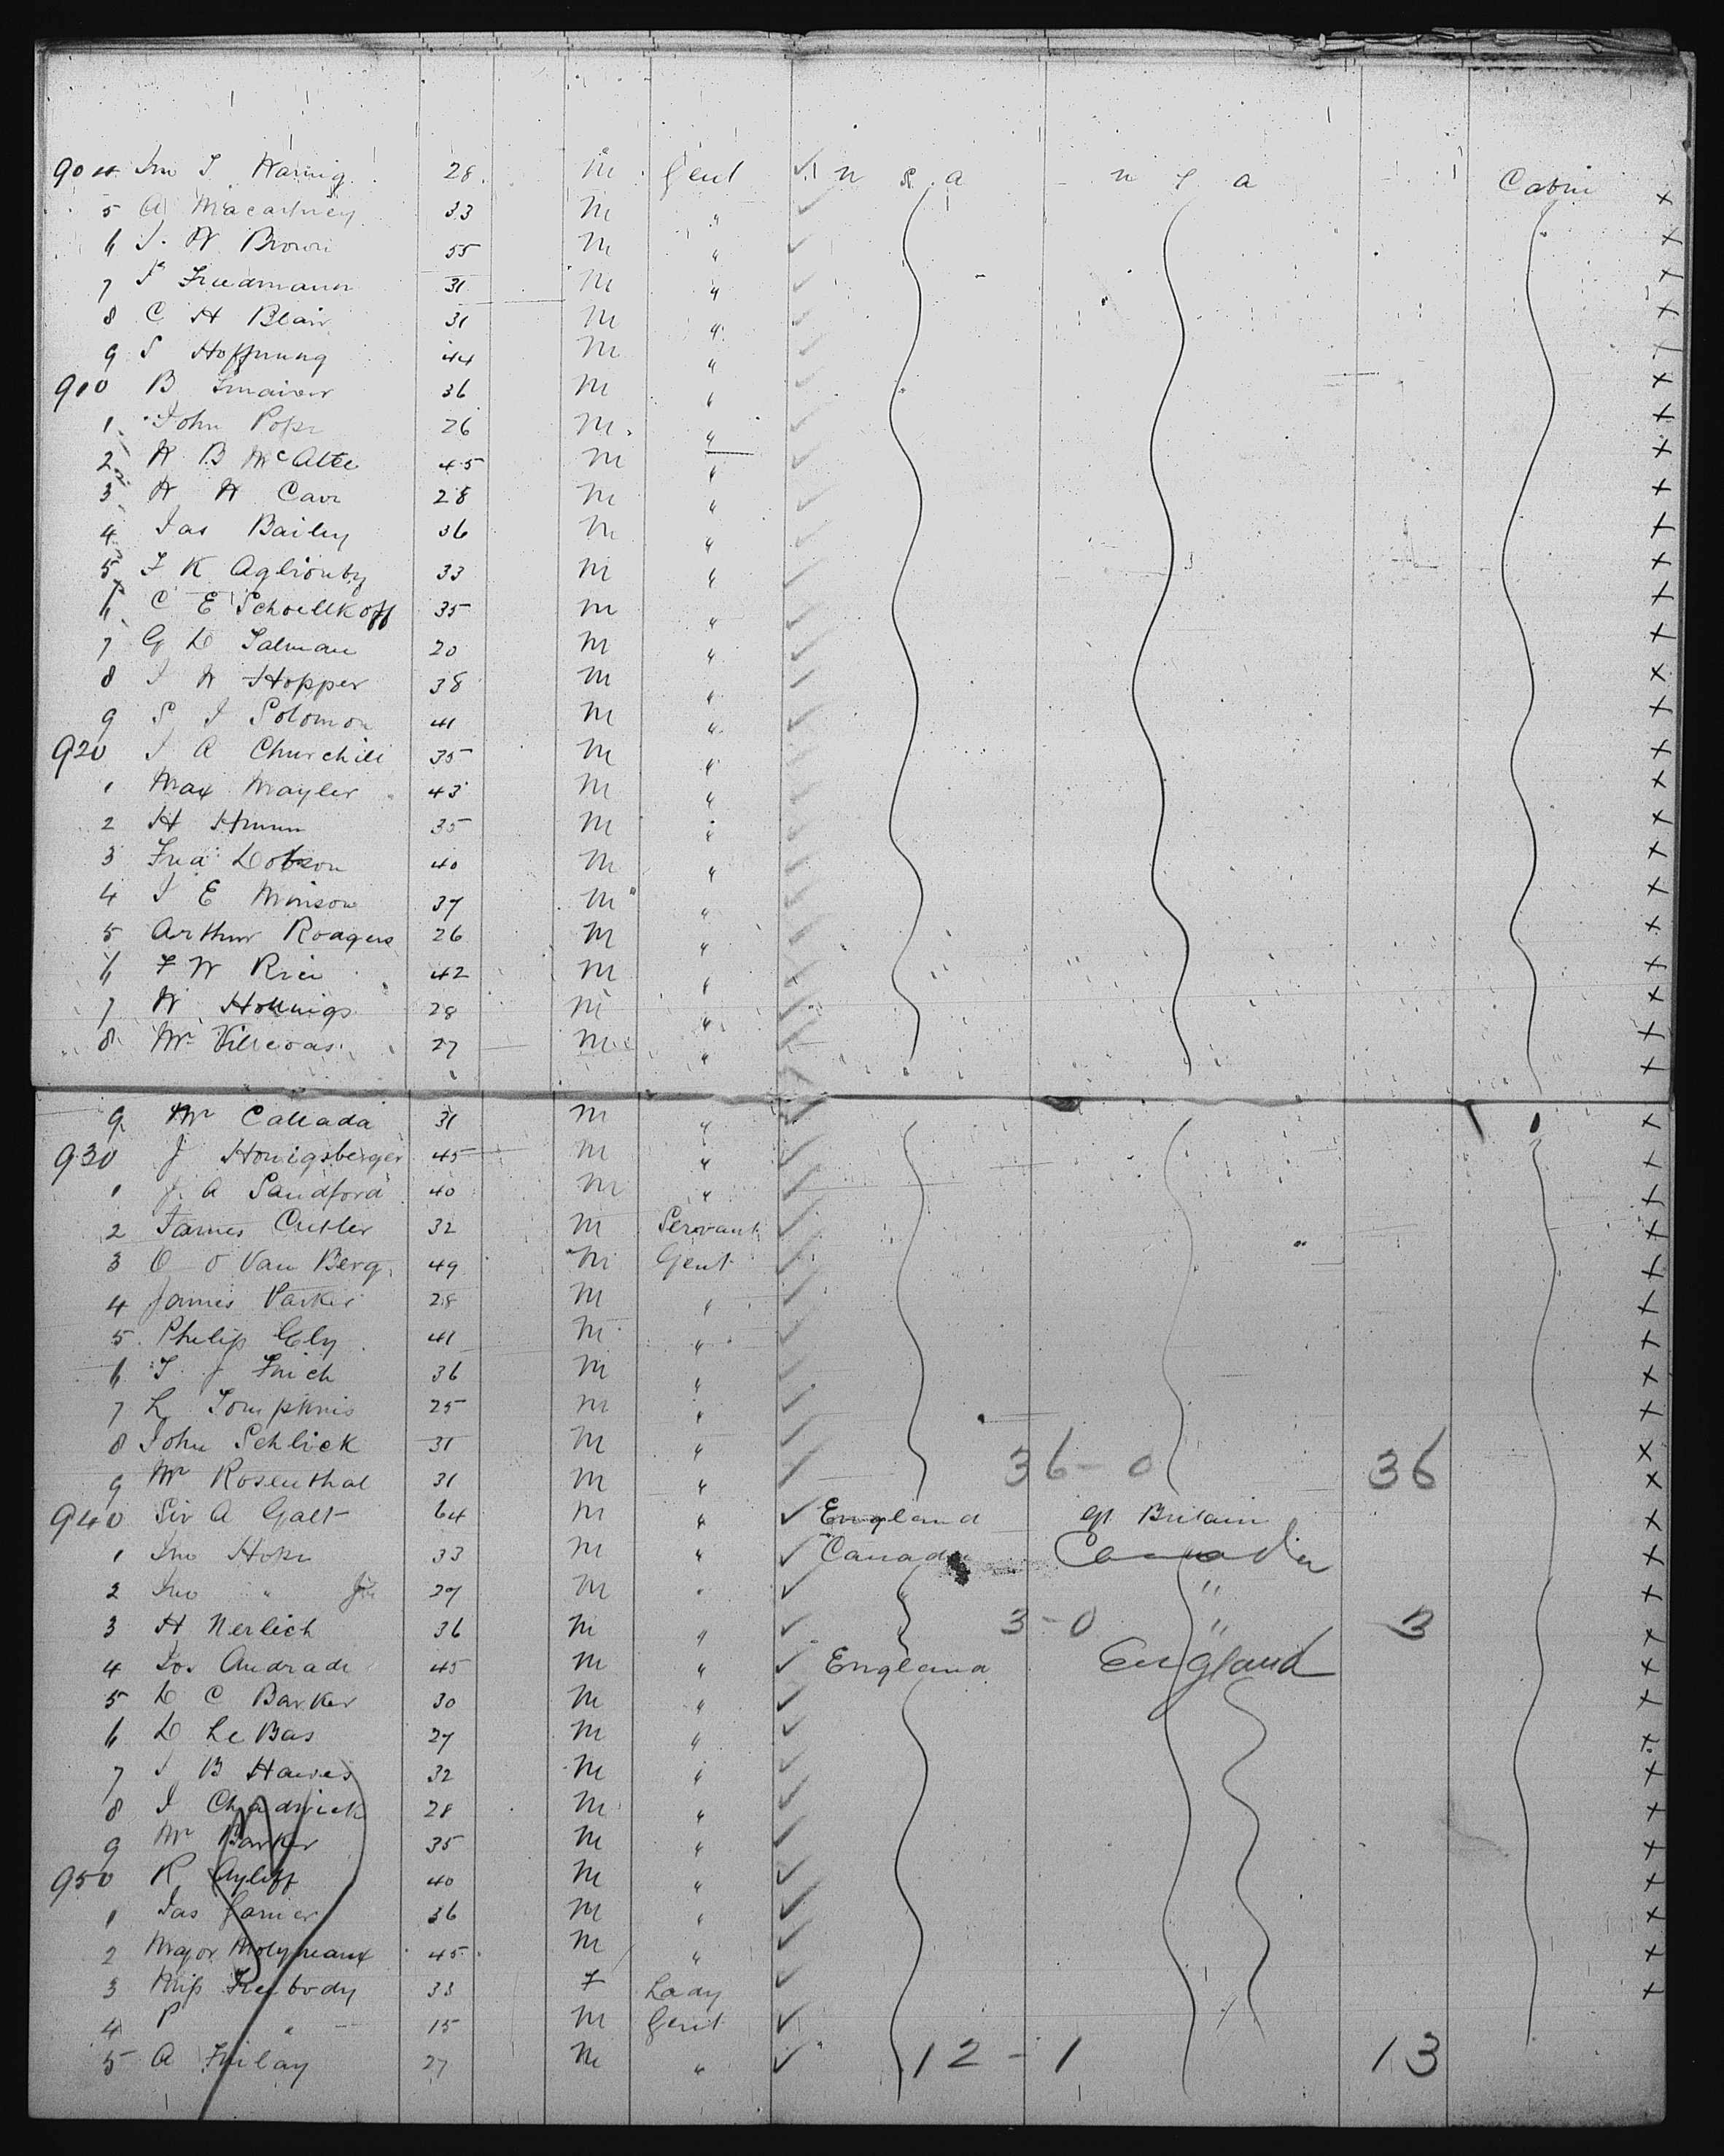 904 Jno T Waring 28 M Gent ✓ U S A U S A Cabin
5 A Macartney 33 M " ✓ ×
6 J. W Brown 55 M " ✓ ×
7 S Friedmann 31 M " ✓ ×
8 C H Blair 31 M " ✓ ×
9 S Hoffnung 44 M " ✓
910 B 36 M " ✓ ×
1 John Pope 26 M " ✓ ×
2 W B McAtee 45 M " ✓ ×
3 W W Carr 28 M " ✓ ×
4 Jas Bailey 36 M " ✓ ×
5 F K Aglionby 33 M " ✓ ×
6 C E Schoellkoff 35 M " ✓ ×
7 G D Salman 20 M " ✓ ×
8 J W Hopper 38 M " ✓ ×
9 S J Solomon 41 M " ✓ ×
920 J A Churchill 35 M " ✓ ×
1 Max Mayler 43 M " ✓ ×
2 H 35 M " ✓ ×
3 Dobson 40 M " ✓ ×
4 J E 37 M " ✓ ×
5 Arthur Roagers 26 M " ✓ ×
6 F W Rice 42 M " ✓ ×
7 W Hollings 28 M " ✓ ×
8 Mr 27 M " ✓ ×
9 Mr Callada 31 M " ✓ ×
930 J Honigsberger 45 M " ✓ ×
1 J. A Sandford 40 M " ✓ ×
2 James Cutler 32 M Servant ✓ ×
3 O O Van Berg 49 M Gent ✓ ×
4 James Parker 28 M " ✓ ×
5 Philip Ely 41 M " ✓ ×
6 T J 36 M " ✓ ×
7 L Tompkins 25 M " ✓ ×
8 John Schlick 31 M " ✓ 36-0 36 ×
9 Mr Rosenthal 31 M " ✓ ×
940 Sir A Galt 64 M " ✓ England Gt Britain ×
1 Jno Hope 33 M " ✓ Canada Canada ×
2 Jno " Jr 27 M " ✓ "
3 H Nerlich 36 M " ✓ 3-0 " 3 ×
4 Jos Andrade 45 M " ✓ England England ×
5 D C Barker 30 M " ✓ ×
6 D Le Bas 27 M " ✓ ×
7 J B Hawes 32 M " ✓ ×
8 J Chadwick 28 M " ✓ ×
9 Mr Barker 35 M " ✓ ×
950 R Ayliff 40 M " ✓ ×
1 Jas 36 M " ✓ ×
2 Major Molyneaux 45 M " ✓ ×
3 Miss Peabody 33 F Lady ✓ ×
4 P " 15 M Gent ✓
5 A Finlay 27 M " ✓ 12-1 13